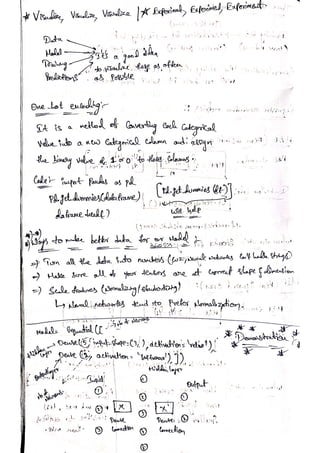 * Visualize, Visualize, Visualize | * Experiment, Experiment, Experiment
Data
Model
Training
Predictions
It's a good idea
to visualize these as often
as possible
One-hot encoding:-
It is a method of Converting each Categorical
Value into a new Categorical Column and assign
the binary value of 1 or 0 to those columns.
Code:- import Pandas as pd
Pd.get_dummies(dataframe)
dataframe itself)
Pd.get_dummies (df)
will help
Ways to make better data for our Model :
=> Turn all the data into numbers (neural networks can't handle strings)
=> Make sure all of your tensors are at correct shape & dimension
=> Scale features (normalizing / standardizing)
↳ Neural networks tend to Prefer Normalization.
Model = Sequential ([
Dense(5, input_shape=(3,), activation='relu'),
Dense(3, activation=
])
Demonstration
Hidden layer
Input
Hidden layer
Output
Dense
Connection
Dense
Connection